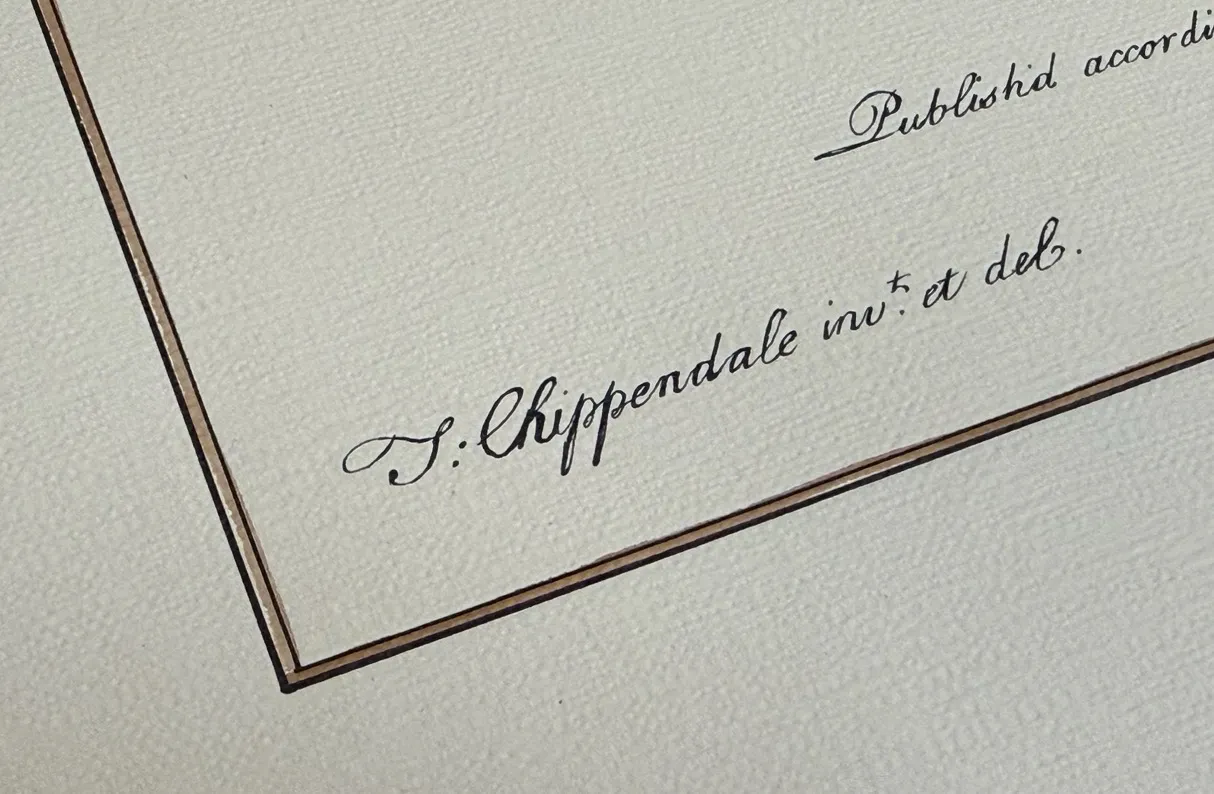 Publish'd accordi
T: Chippendale invᵗ. et del.